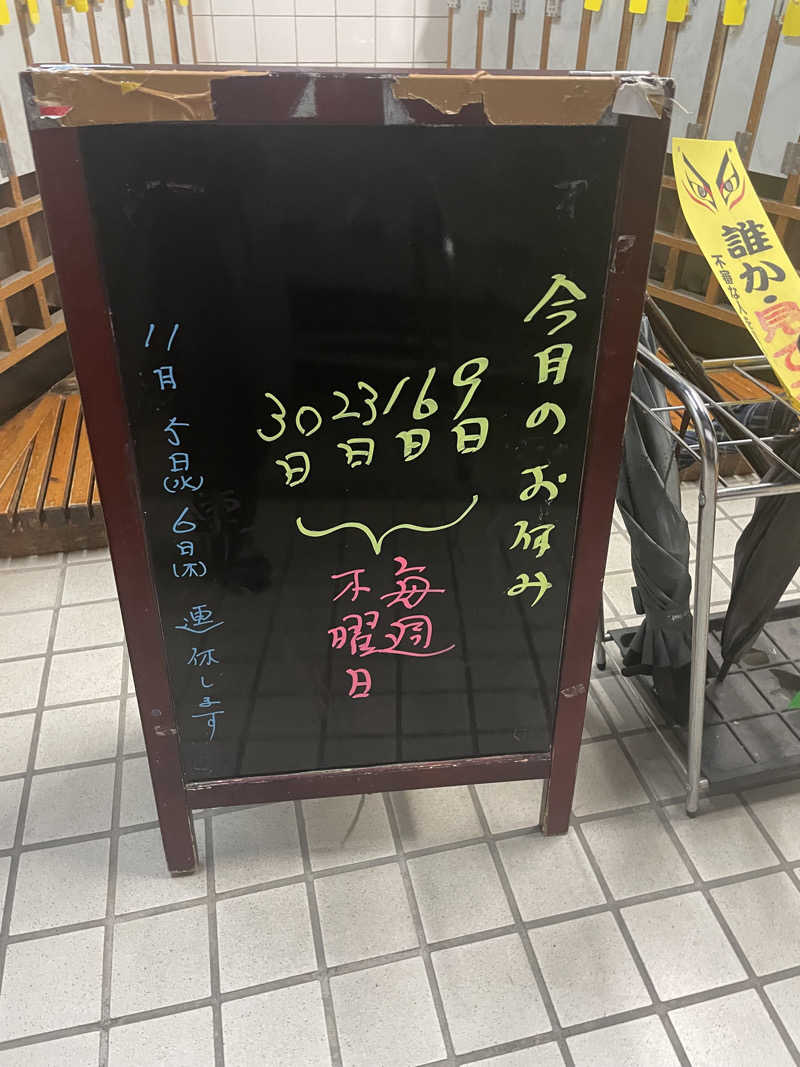 今月のお休み
9日
16日
23日
30日
毎週
木曜日
11月5日(水)6日(木)連休します
誰か見て
不審な人